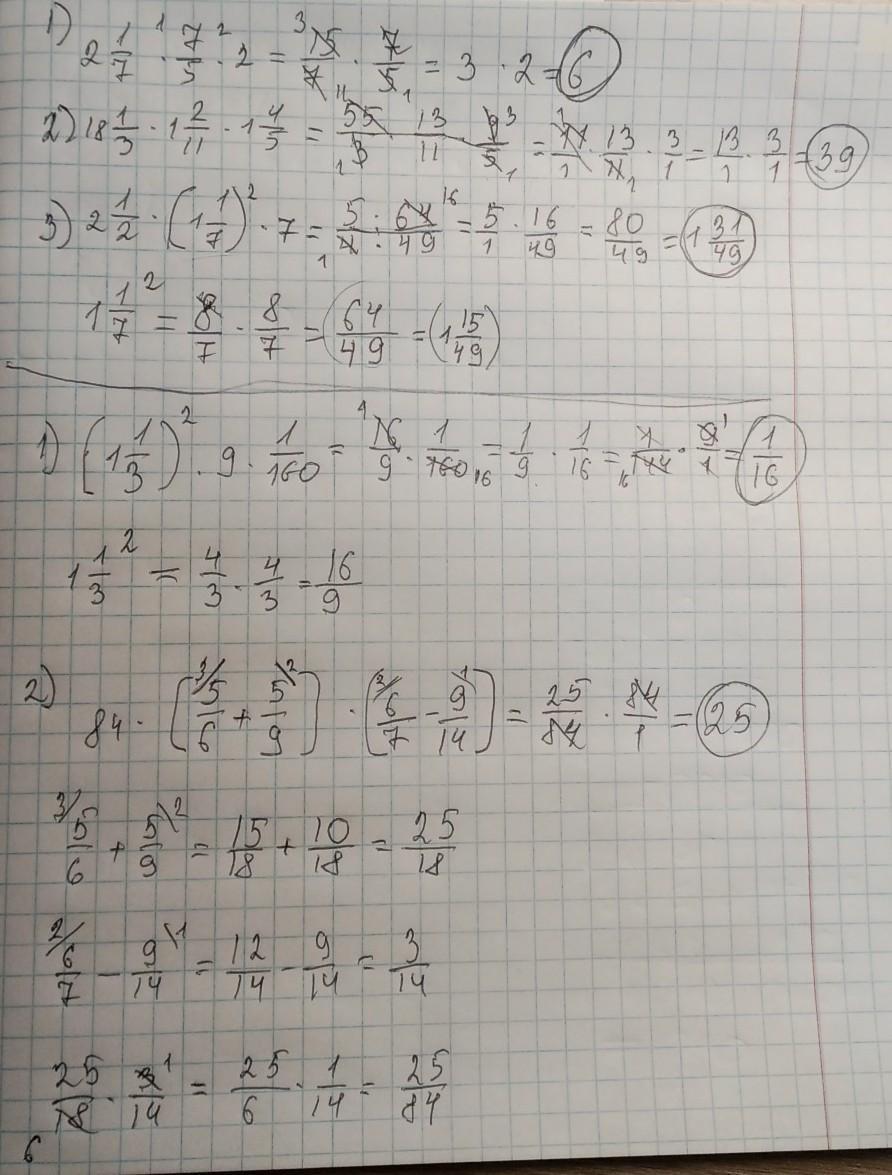 1) 2 1/7 · 7/5 · 2 = 15/7 · 7/5 = 3 · 2 = 6
2) 18 1/3 · 1 2/11 · 1 4/5 = 55/3 · 13/11 · 9/5 = 11/1 · 13/11 · 3/1 = 13/1 · 3/1 = 39
3) 2 1/2 · (1 1/7)² · 7 = 5/4 · 64/49 = 5/1 · 16/49 = 80/49 = 1 31/49
1 1/7² = 8/7 · 8/7 = 64/49 = (1 15/49)
1) (1 1/3)² · 9 · 1/160 = 16/9 · 1/160 = 1/9 · 1/16 = 1/144 · 9/1 = 1/16
1 1/3² = 4/3 · 4/3 = 16/9
2) 84 · [5/6 + 5/9] · [6/7 - 9/14] = 25/84 · 84/1 = 25
5/6 + 5/9 = 15/18 + 10/18 = 25/18
6/7 - 9/14 = 12/14 - 9/14 = 3/14
25/18 · 3/14 = 25/6 · 1/14 = 25/84